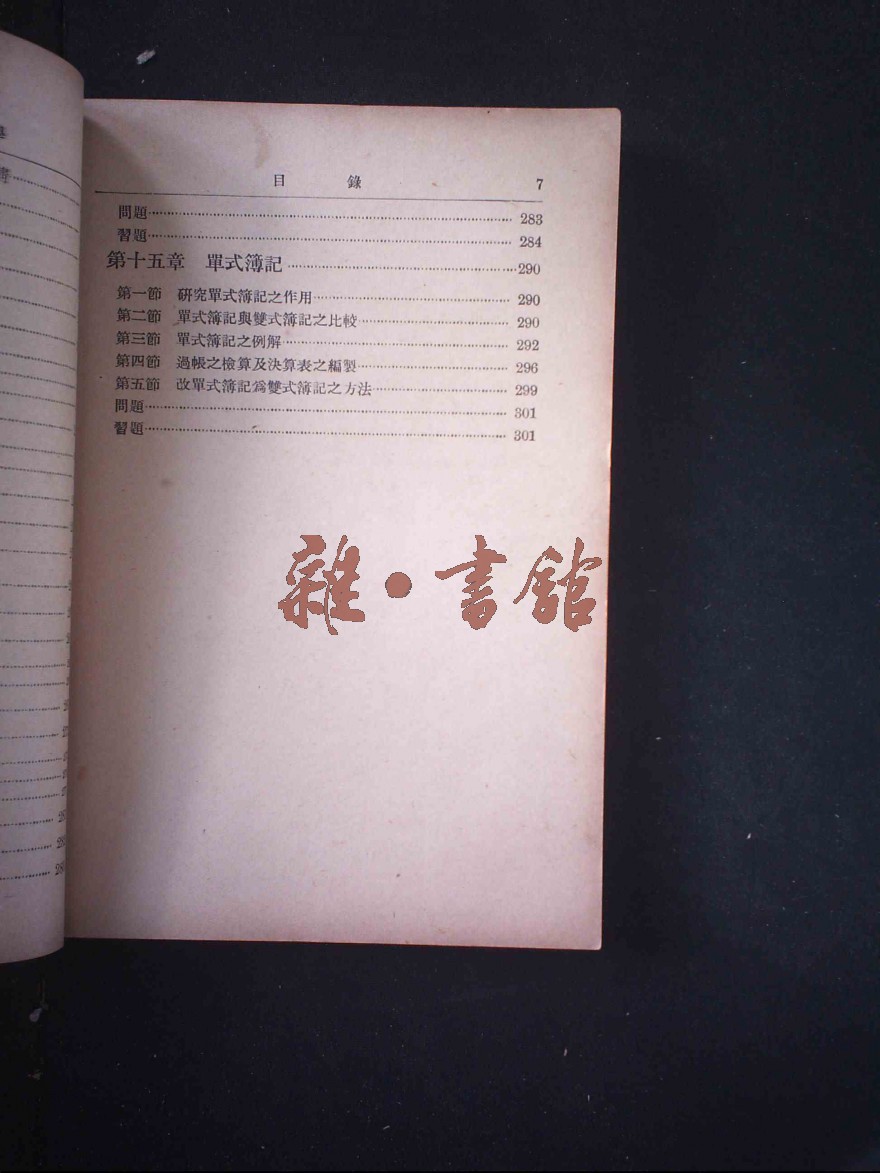 目 錄 7
問題 283
習題 284
第十五章 單式簿記 290
第一節 硏究單式簿記之作用 290
第二節 單式簿記與雙式簿記之比較 290
第三節 單式簿記之例解 292
第四節 過帳之檢算及決算表之編製 296
第五節 改單式簿記爲雙式簿記之方法 299
問題 301
習題 301
雜·書館